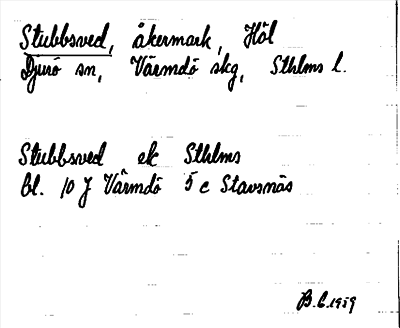 Stubbsved, åkermark, Höl
Djurö sn, Värmdö skg, Sthlms l.
Stubbsved ek Sthlms
bl. 10 J Värmdö 5 c Stavsnäs
B.C. 1959